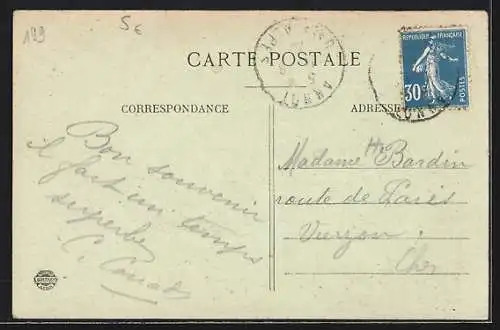 199
5€
CARTE POSTALE
ANNOT
ALPES
RÉPUBLIQUE FRANÇAISE
30c
POSTES
CORRESPONDANCE
ADRESSE
Bon souvenir
il fait un temps
superbe
C.
Madame Bardin
route de Paris
Vierzon
Cher